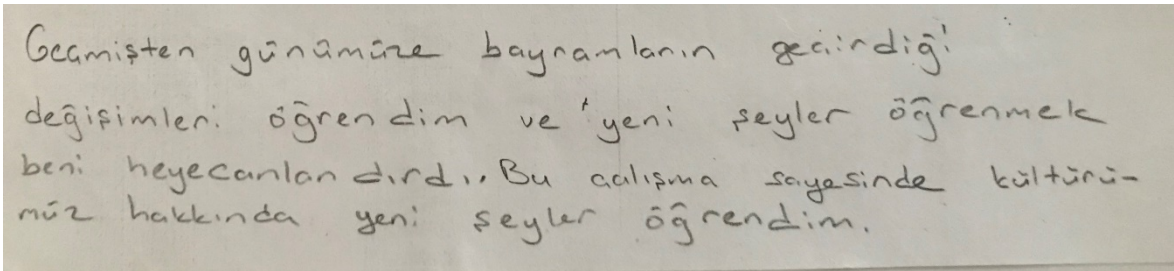 Geçmişten günümüze bayramların geçirdiği
değişimleri öğrendim ve yeni şeyler öğrenmek
beni heyecanlandırdı.. Bu çalışma sayesinde kültürü-
müz hakkında yeni şeyler öğrendim.